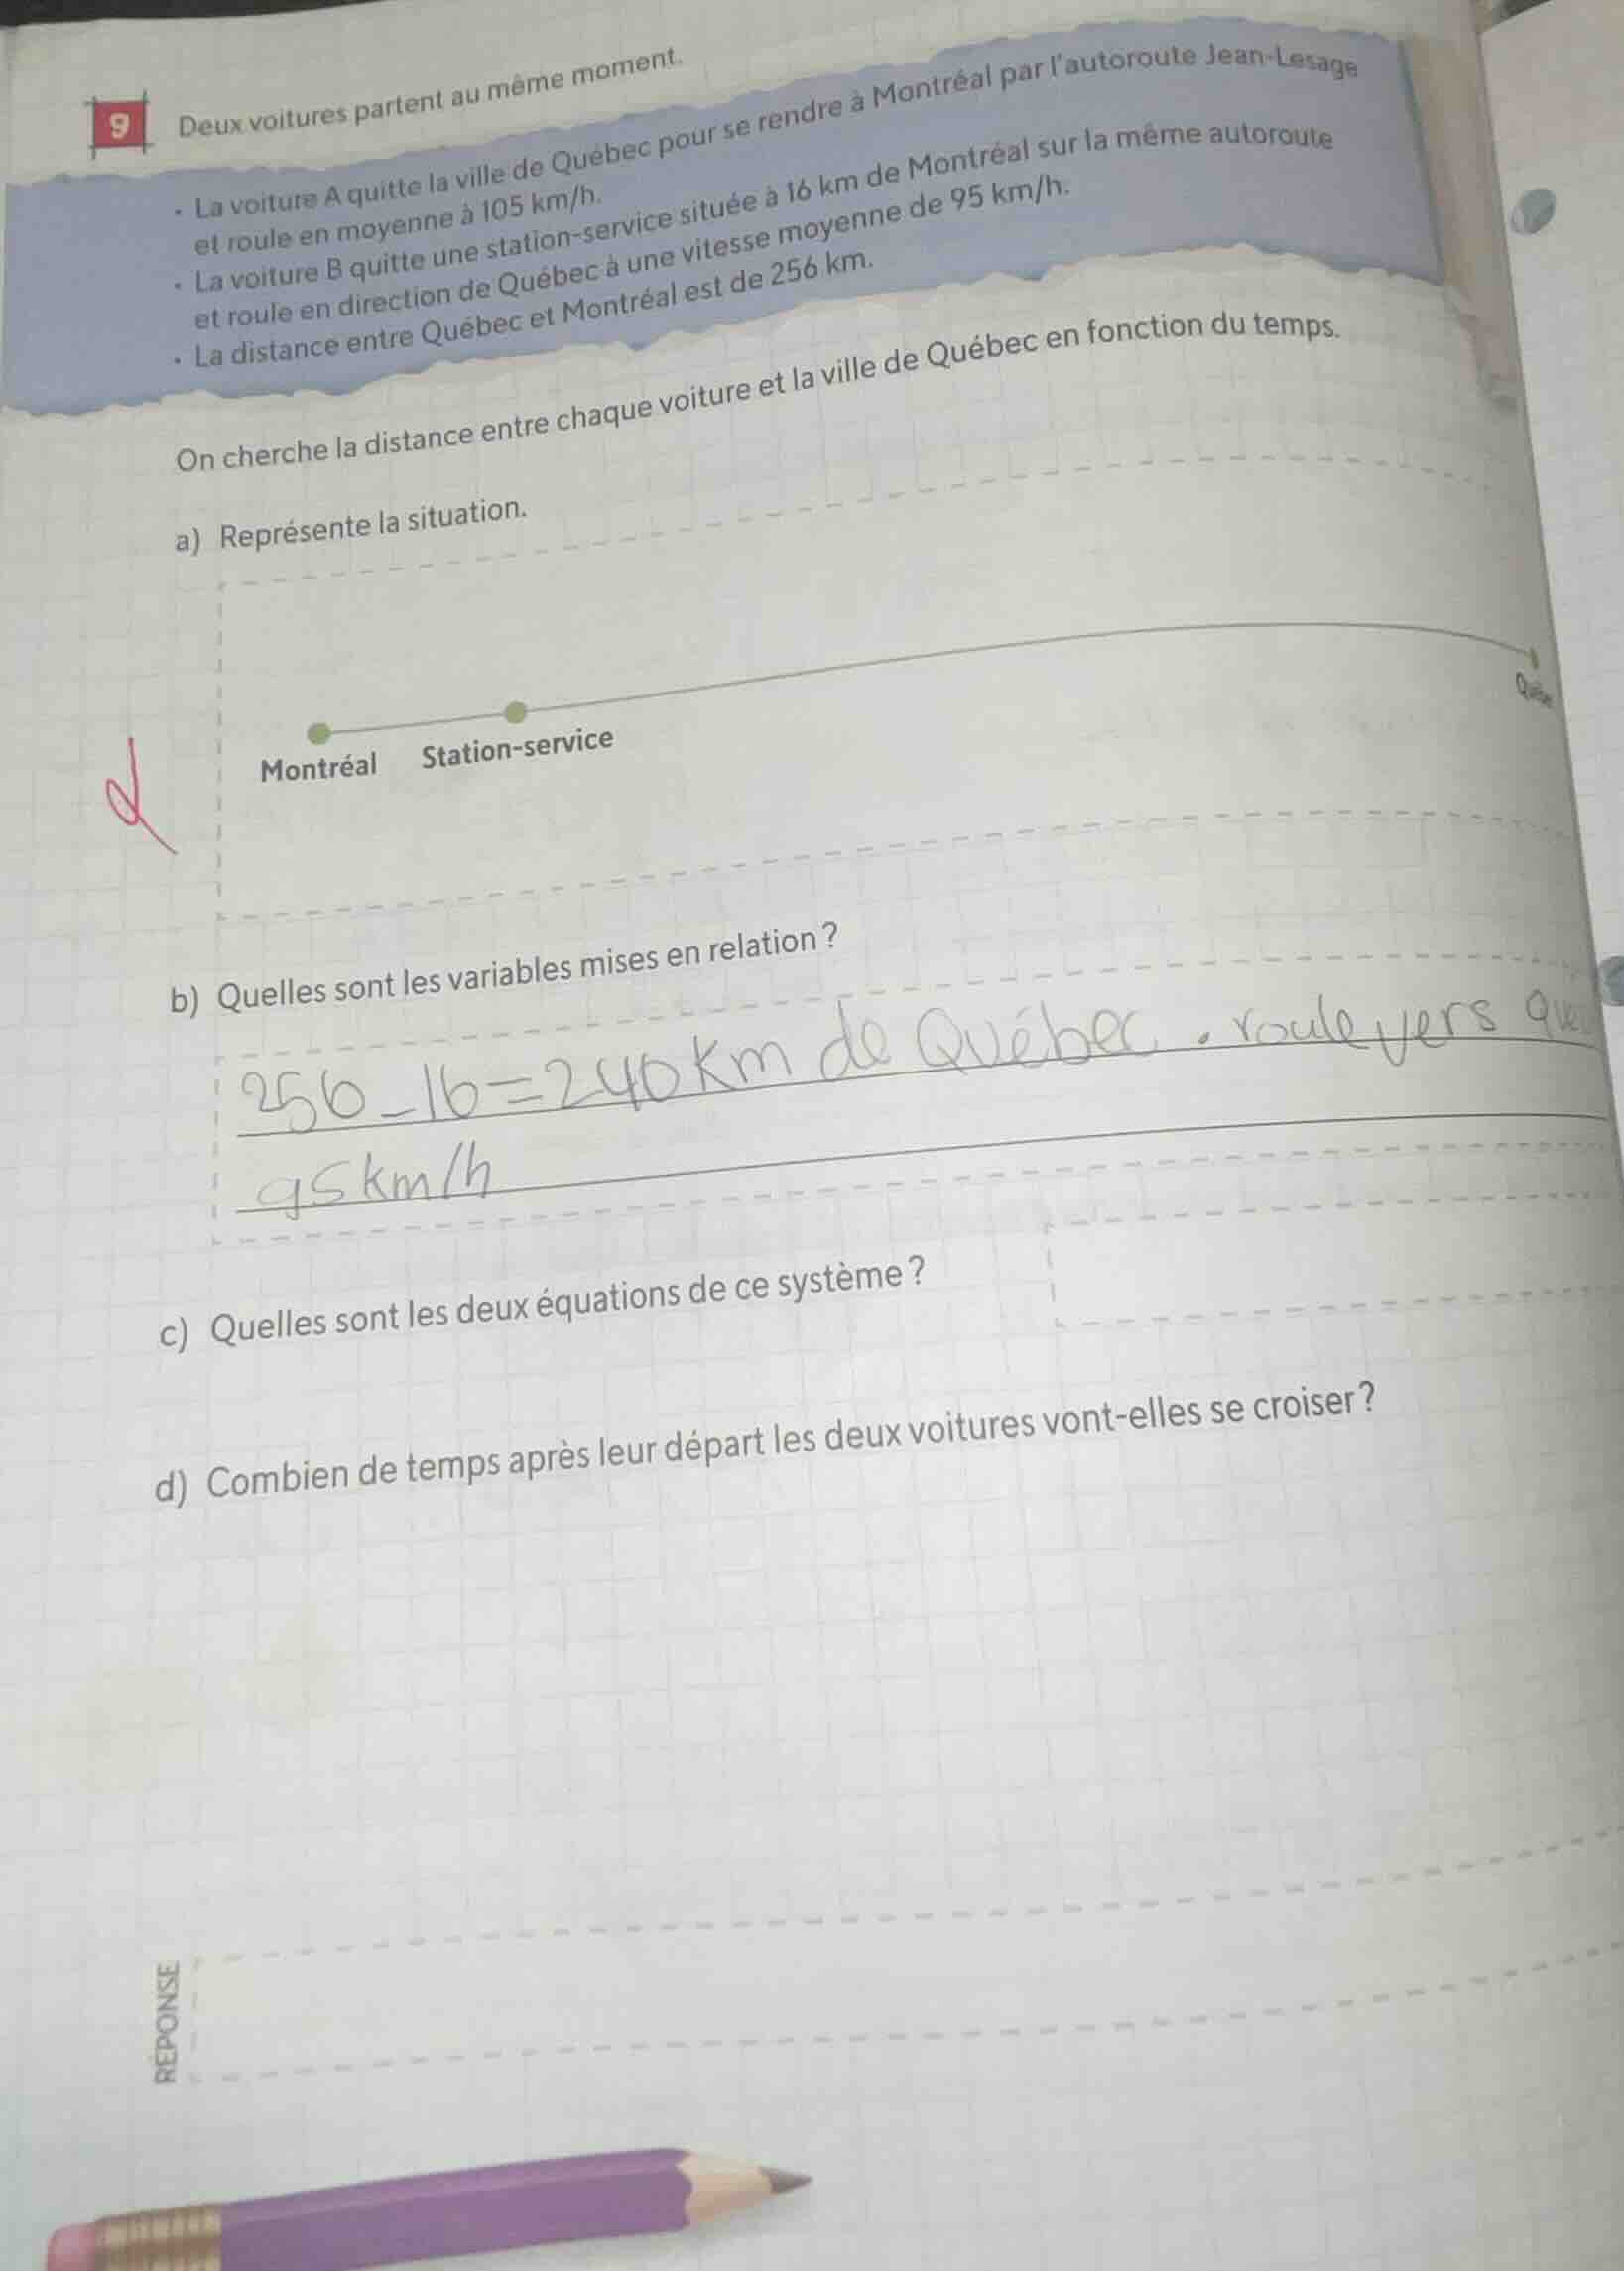 9 Deux voitures partent au même moment.
• La voiture A quitte la ville de Québec pour se rendre à Montréal par l'autoroute Jean-Lesage
et roule en moyenne à 105 km/h.
• La voiture B quitte une station-service située à 16 km de Montréal sur la même autoroute
et roule en direction de Québec à une vitesse moyenne de 95 km/h.
• La distance entre Québec et Montréal est de 256 km.
On cherche la distance entre chaque voiture et la ville de Québec en fonction du temps.
a) Représente la situation.
Québec
Montréal Station-service
b) Quelles sont les variables mises en relation ?
256-16=240km de Québec . roule vers
95km/h
c) Quelles sont les deux équations de ce système ?
d) Combien de temps après leur départ les deux voitures vont-elles se croiser ?
RÉPONSE